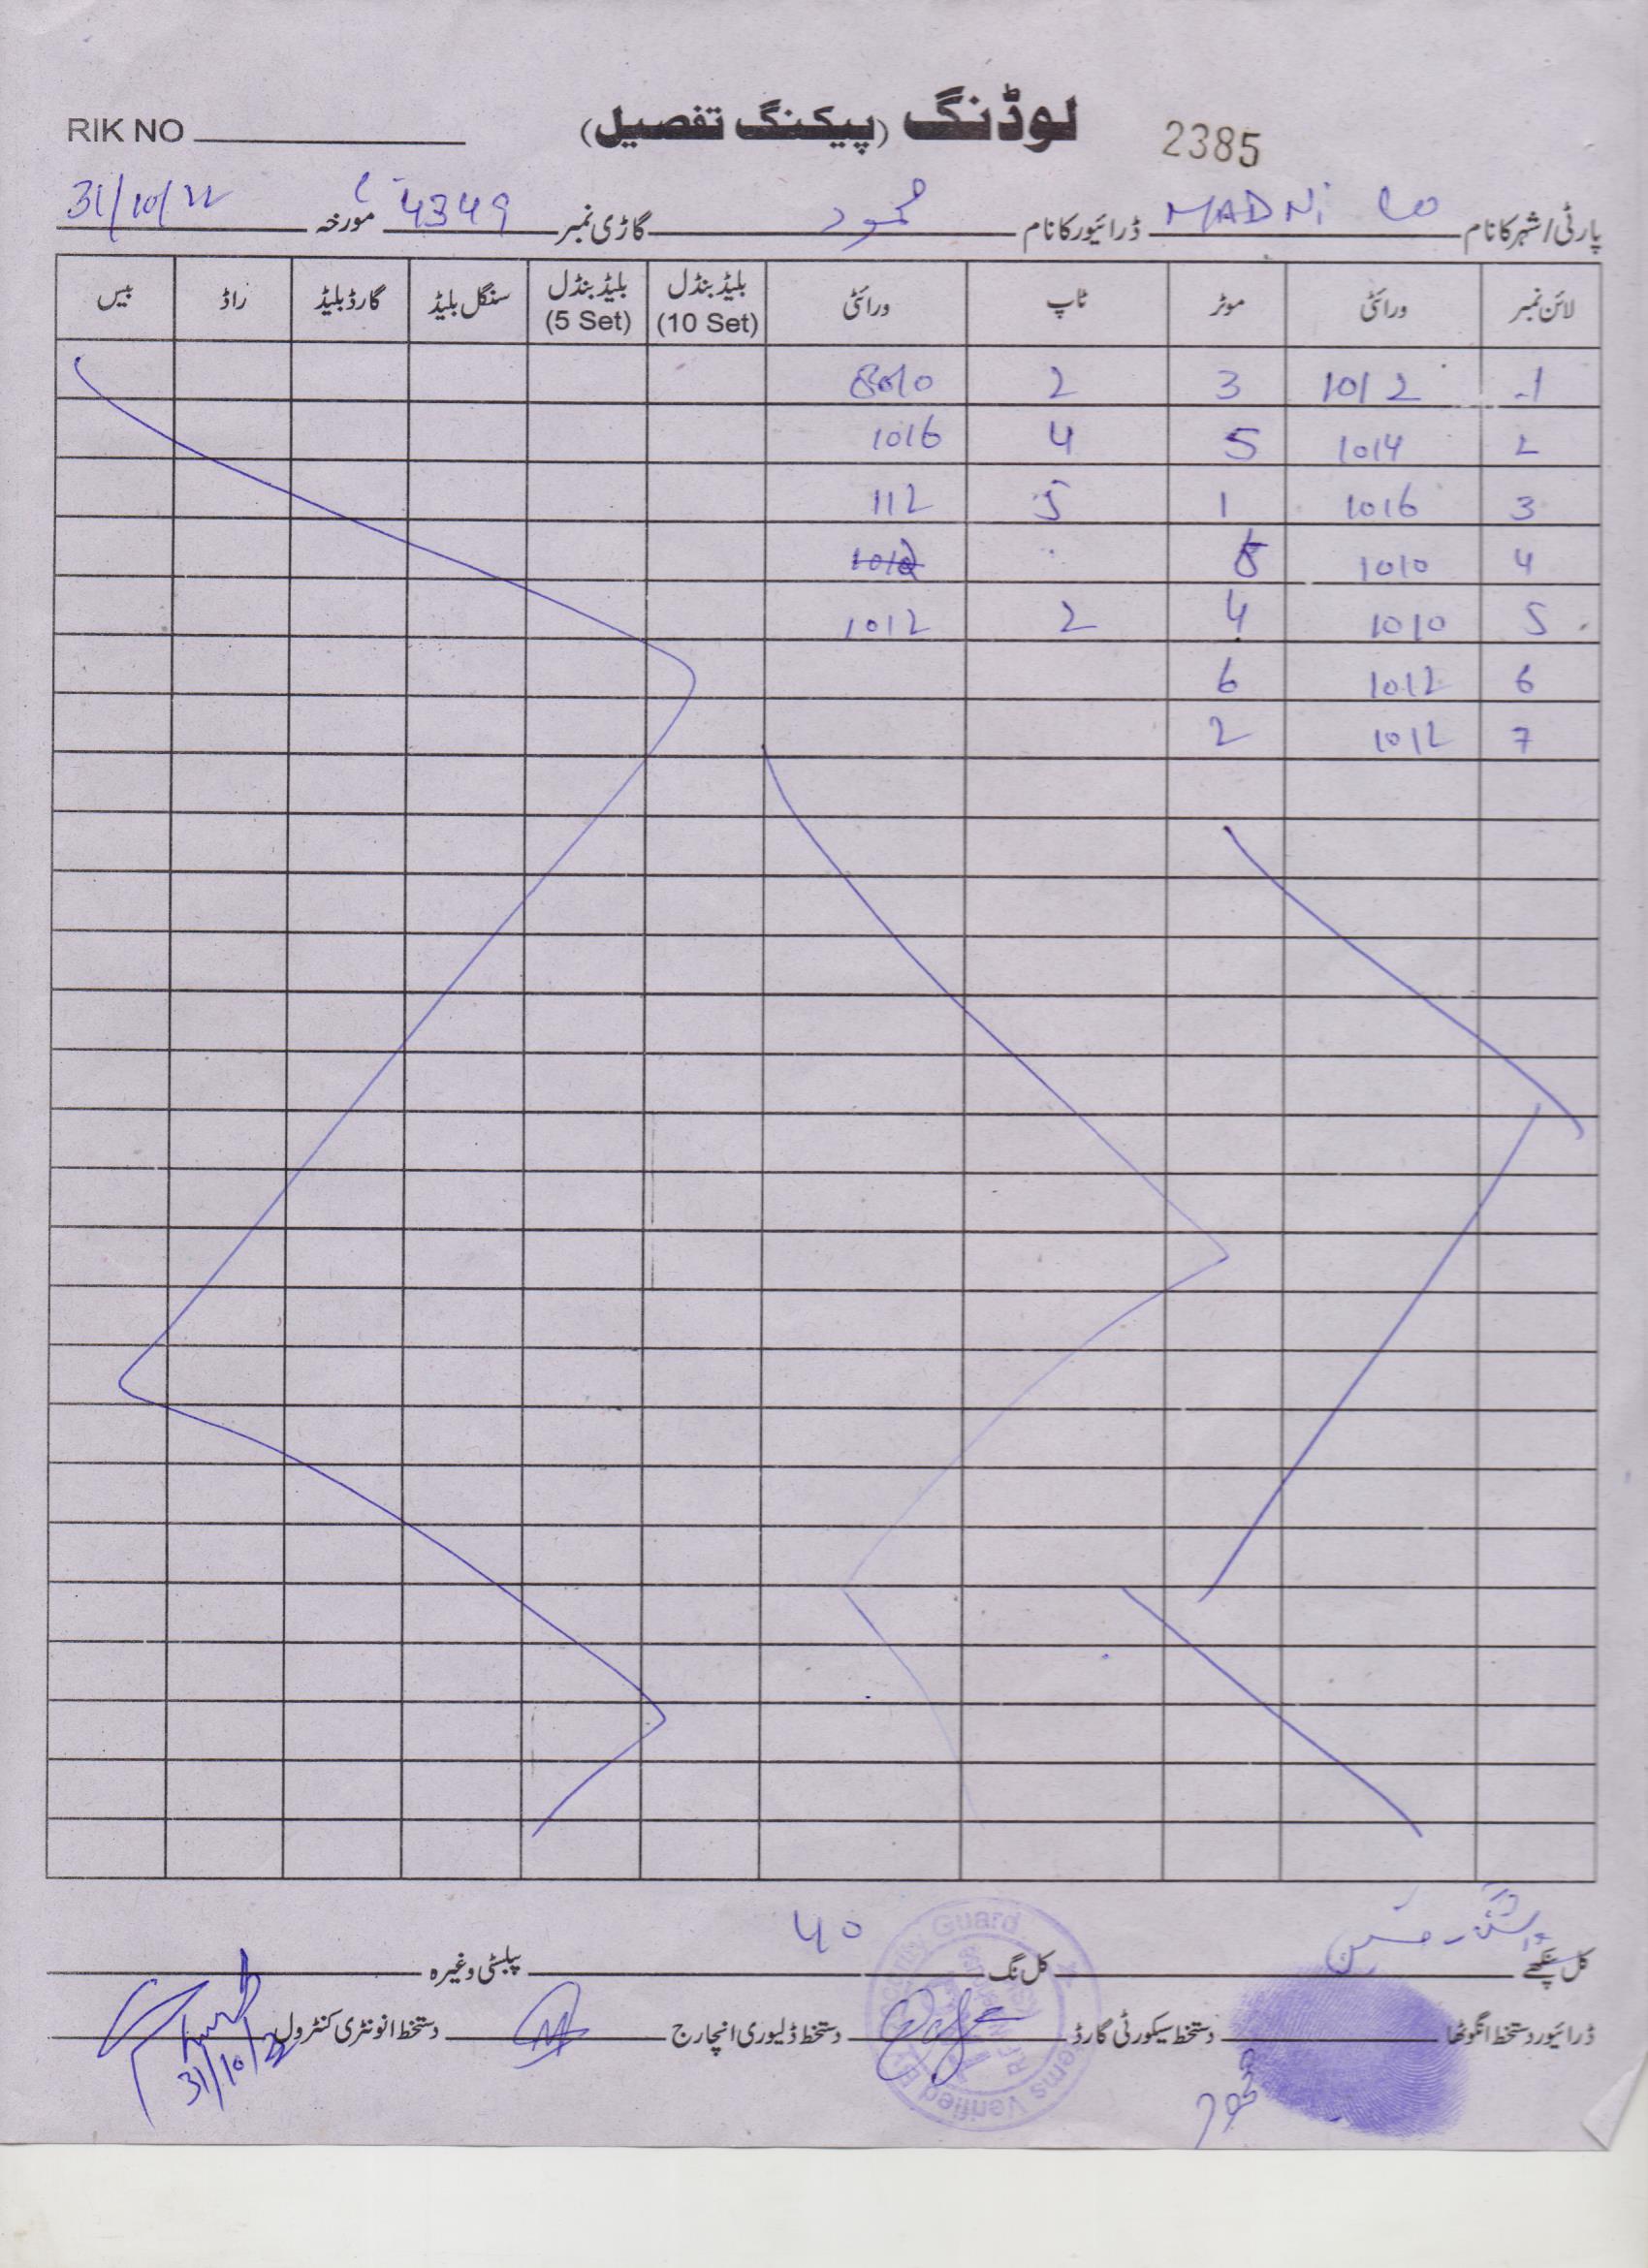 RIK NO
لوڈنگ (پیکنگ تفصیل)
2385
پارٹی/شہر کا نام MADNi co ڈرائیور کا نام محمود گاڑی نمبر 4349 مورخہ 31/10/22
لائن نمبر ورائٹی موٹر ٹاپ ورائٹی بلیڈ بنڈل (10 Set) بلیڈ بنڈل (5 Set) سنگل بلیڈ گارڈ بلیڈ راڈ بیس
1 1012 3 2 8010
2 1014 5 4 1016
3 1016 1 5 112
4 1010
5 1010 4 2 1012
6 1012 6
7 1012 2
کل پنکھے کل نگ 40 پبلسٹی وغیرہ
ڈرائیور دستخط انگوٹھا دستخط سیکورٹی گارڈ دستخط ڈلیوری انچارج دستخط انونٹری کنٹرول
محمود
31/10/22
Security Guard
Items Verified By